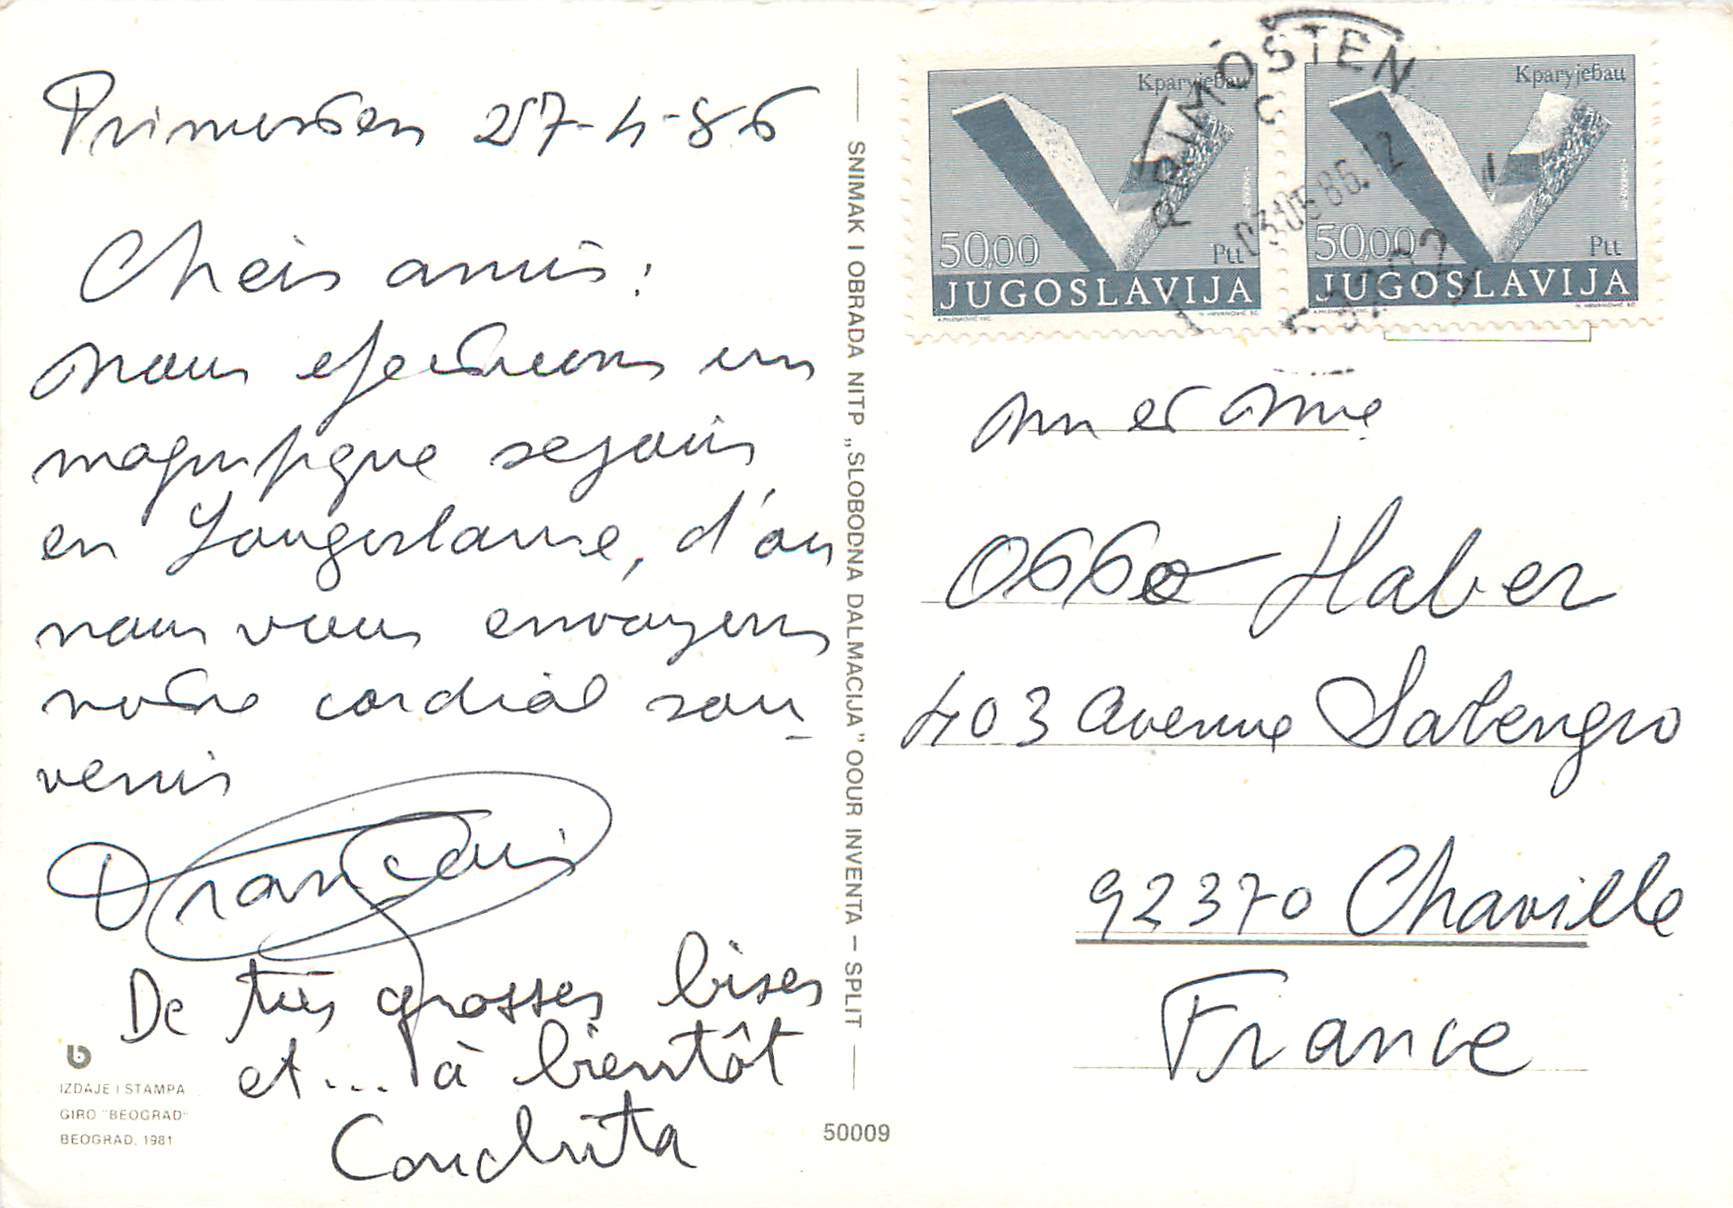 Primosten 27-4-86
Chers amis:
nous effectuons un
magnifique sejour
en Yougoslavie, d'ou
nous vous envoyons
notre cordial sou-
venir
François
De très grosses bises
et... à bientôt
Conchita
IZDAJE I STAMPA
GIRO "BEOGRAD"
BEOGRAD, 1981
SNIMAK I OBRADA NITP „SLOBODNA DALMACIJA" OOUR INVENTA — SPLIT
50009
Крагујевац
50,00 Ptt
JUGOSLAVIJA
Крагујевац
50,00 Ptt
JUGOSLAVIJA
PRIMOŠTEN
03.05.86.12
Mr et Mme
Haber
403 Avenue Salengro
92370 Chaville
France